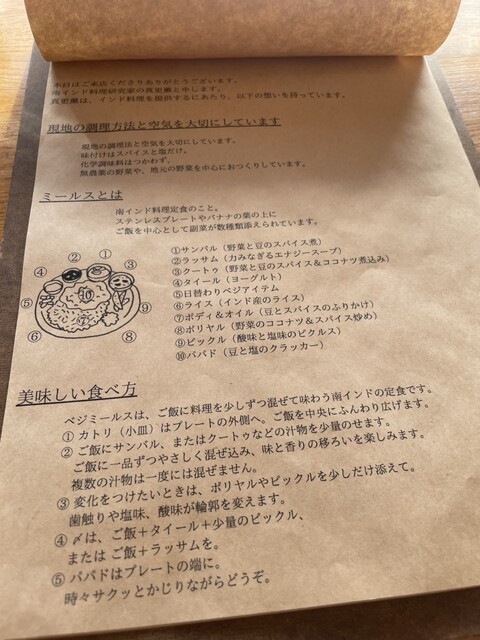 本日はご来店くださりありがとうございます。
南インド料理研究家の真更薫と申します。
真更薫は、インド料理を提供するにあたり、以下の想いを持っています。
現地の調理方法と空気を大切にしています
現地の調理法と空気を大切にしています。
味付けはスパイスと塩だけ。
化学調味料はつかわず、
無農薬の野菜や、地元の野菜を中心におつくりしています。
ミールスとは
南インド料理定食のこと。
ステンレスプレートやバナナの葉の上に
ご飯を中心として副菜が数種類添えられています。
①サンバル（野菜と豆のスパイス煮）
②ラッサム（力みなぎるエナジースープ）
③クートゥ（野菜と豆のスパイス&ココナツ煮込み）
④タイール（ヨーグルト）
⑤日替わりベジアイテム
⑥ライス（インド産のライス）
⑦ポディ&オイル（豆とスパイスのふりかけ）
⑧ポリヤル（野菜のココナツ&スパイス炒め）
⑨ピックル（酸味と塩味のピクルス）
⑩パパド（豆と塩のクラッカー）
① ② ③ ④ ⑤ ⑥ ⑦ ⑧ ⑨ ⑩
美味しい食べ方
ベジミールスは、ご飯に料理を少しずつ混ぜて味わう南インドの定食です。
① カトリ（小皿）はプレートの外側へ。ご飯を中央にふんわり広げます。
② ご飯にサンバル、またはクートゥなどの汁物を少量のせます。
ご飯に一品ずつやさしく混ぜ込み、味と香りの移ろいを楽しみます。
複数の汁物は一度には混ぜません。
③ 変化をつけたいときは、ポリヤルやピックルを少しだけ添えて。
歯触りや塩味、酸味が輪郭を変えます。
④ 〆は、ご飯＋タイール＋少量のピックル、
または ご飯＋ラッサムを。
⑤ パパドはプレートの端に。
時々サクッとかじりながらどうぞ。